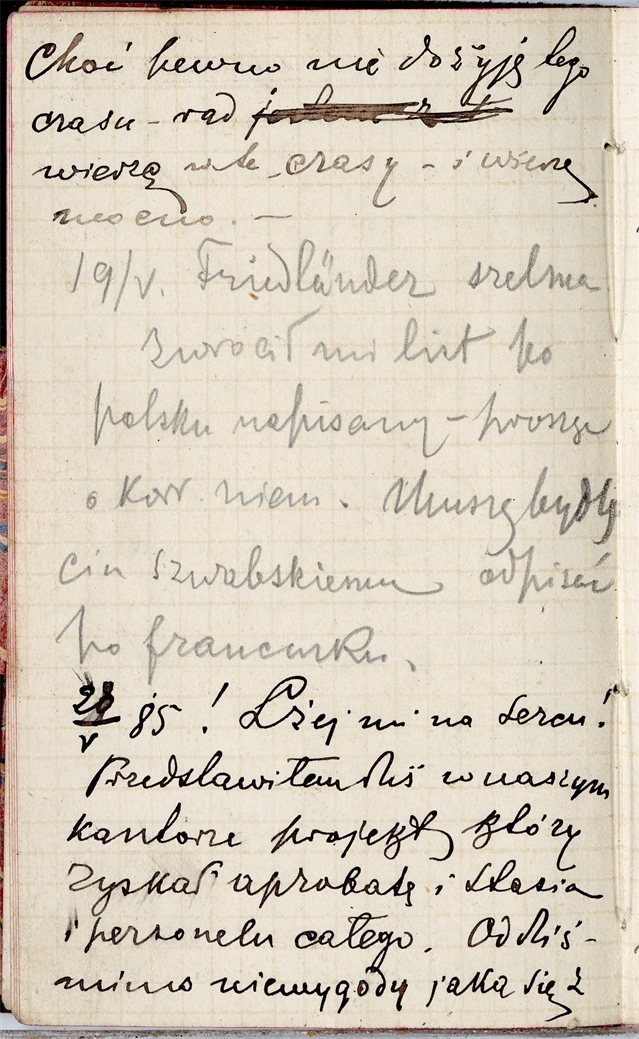 Choć pewno nie dożyję tego
czasu – rad
wierzę w te czasy – i wierzę
mocno. —
19/V. Friedländer szelma
zwrócił mi list po
polsku napisany – proszę
o kor. niem. Muszę bydlę
ciu szwabskiemu odpisać
po francusku.
28/V 85! Lżej mi na sercu!
Przedstawiłem dziś w naszym
kantorze projekt który
zyskał aprobatę i Stasia
i personelu całego. Od dziś –
mimo niewygody jaka się z